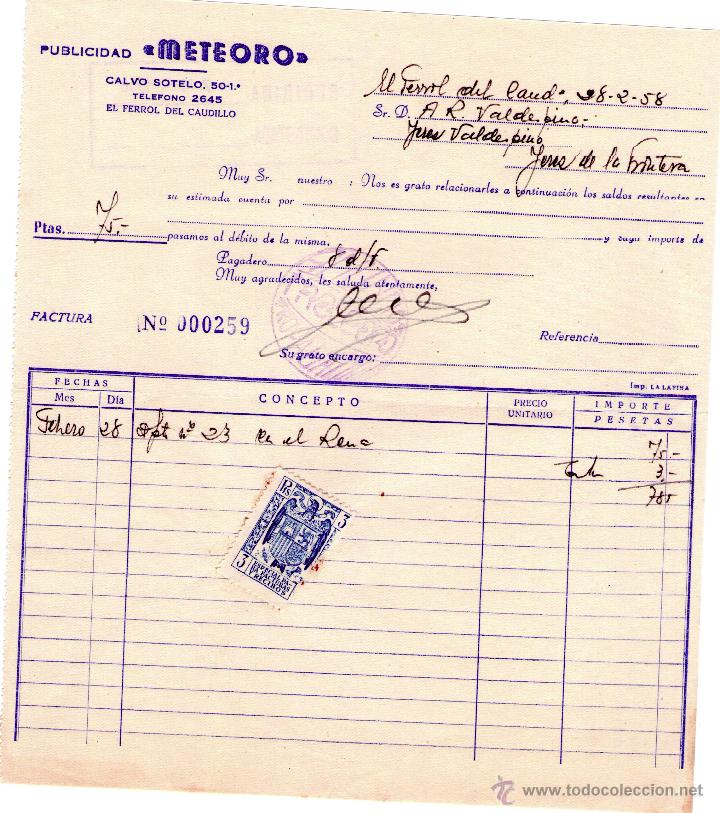 PUBLICIDAD «METEORO»
CALVO SOTELO, 50-1.º
TELEFONO 2645
EL FERROL DEL CAUDILLO
El Ferrol del Caudº, 28-2-58
Sr. D. A R. Valdespino.-
Jerez Valdespino
Jerez de la Frontera
Muy Sr. nuestro : Nos es grato relacionarles a continuación los saldos resultantes en
su estimada cuenta por
y cuyo importe de
Ptas. 75.- pasamos al débito de la misma.
Pagadero 8 d/f
Muy agradecidos, les saluda atentamente,
FACTURA Nº 000259
Referencia
Su grato encargo:
Imp. LA LATINA
FECHAS
Mes Día
CONCEPTO
PRECIO UNITARIO
IMPORTE
PESETAS
Febrero 28 nº 23 en el 75.-
3.-
78
Pts 3
3 ESPECIAL PARA FACTURAS Y RECIBOS
www.todocoleccion.net